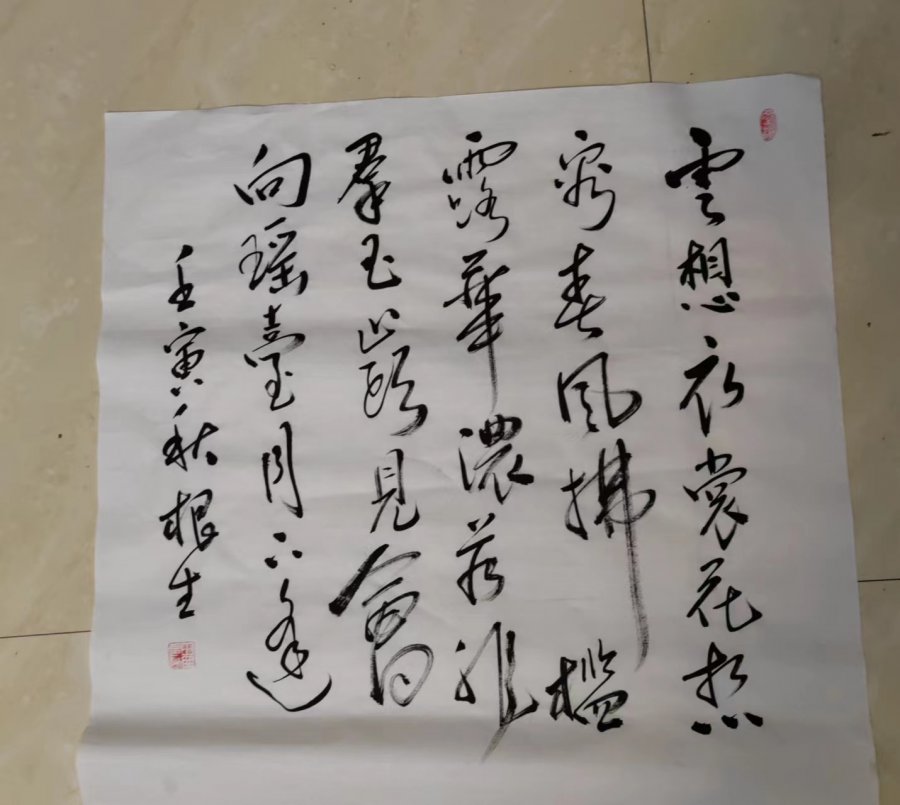 雲想衣裳花想
容春風拂檻
露華濃若非
羣玉山頭見會
向瑶臺月下逢
壬寅秋根生